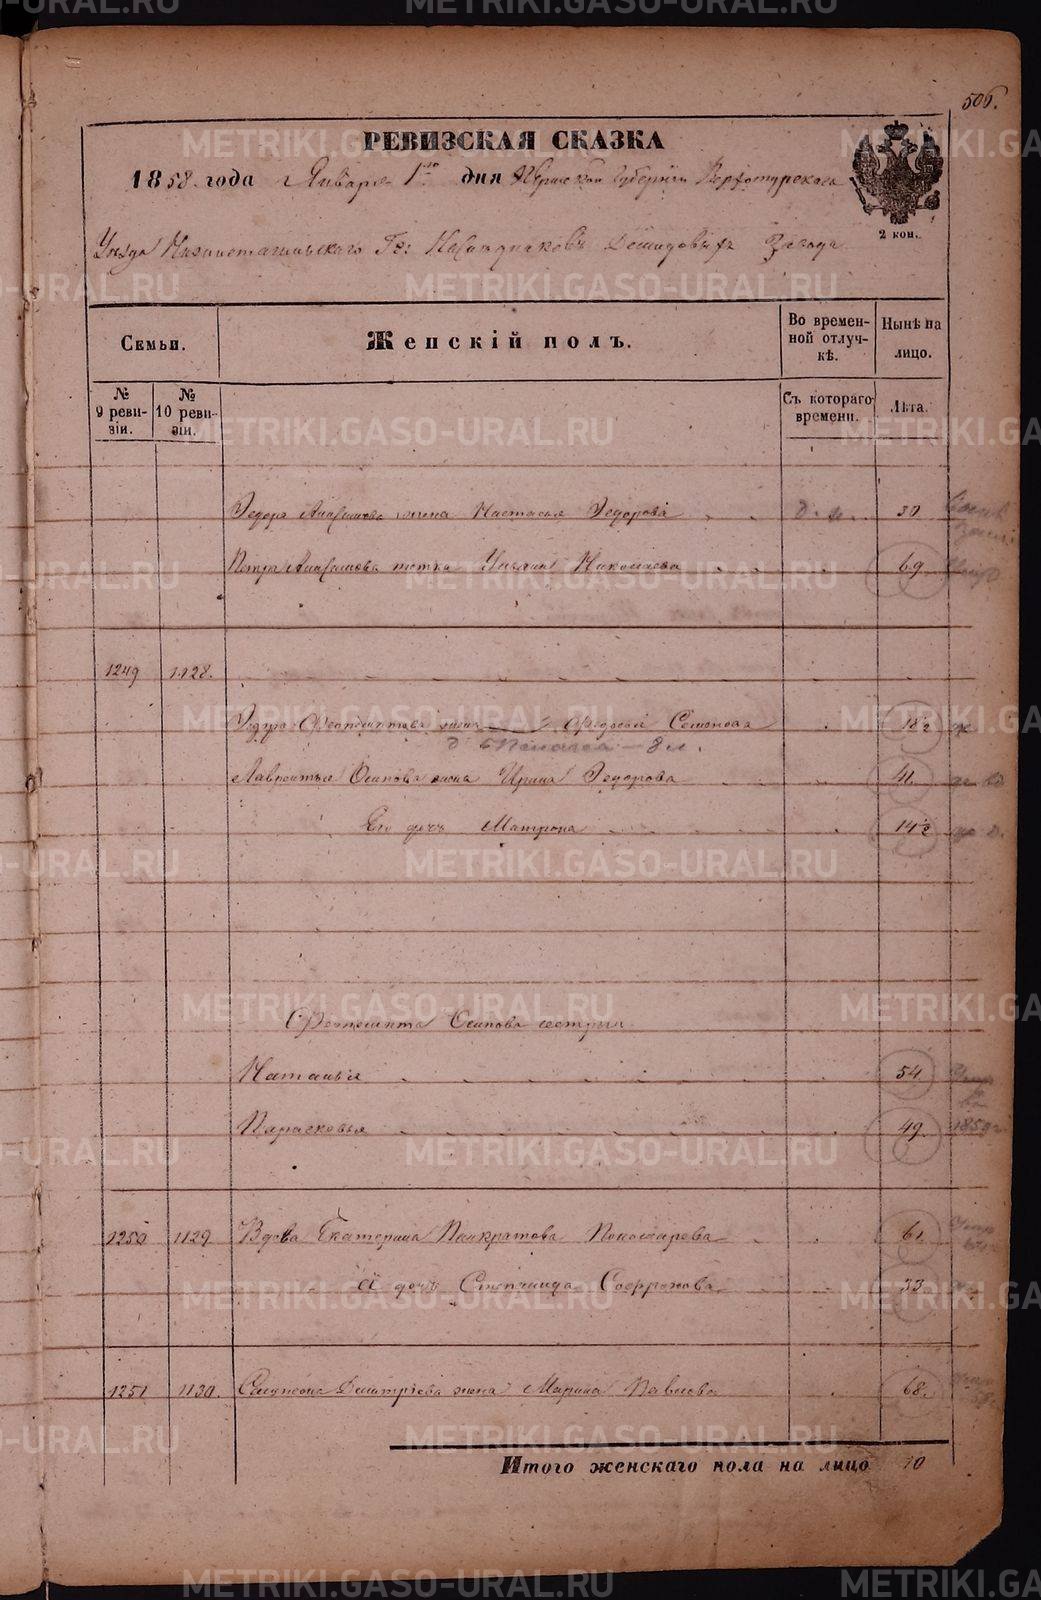 506.
РЕВИЗСКАЯ СКАЗКА
1858 года Января 1го дня Пермской Губернии Верхотурскаго
Уѣзда Нижнетагильскаго Гг. Наслѣдниковъ Демидовыхъ Завода
2 кон.
Семьи.
Женскій полъ.
Во времен-
ной отлуч-
кѣ.
Нынѣ на
лицо.
№
9 реви-
зіи.
№
10 реви-
зіи.
Съ котораго
времени.
Лѣта.
Ѳедора жена Настасья Ѳедорова 30
Петра тетка Ульяна Николаева 69
1249 1128.
жена Ѳедосья Семенова 18½
Лаврентья Осипова жена Ирина Ѳедорова 41.
Его дочь Матрона 14½
Феоктиста Осипова сестры
Наталья 54
Парасковья 49. 1859
1250 1129 Вдова Екатерина Панкратова Пономарева 61
Ея дочь Степанида Софронова 33
1251 1130. Дмитріева жена Марина Павлова 68.
Итого женскаго пола на лицо 10
METRIKI.GASO-URAL.RU